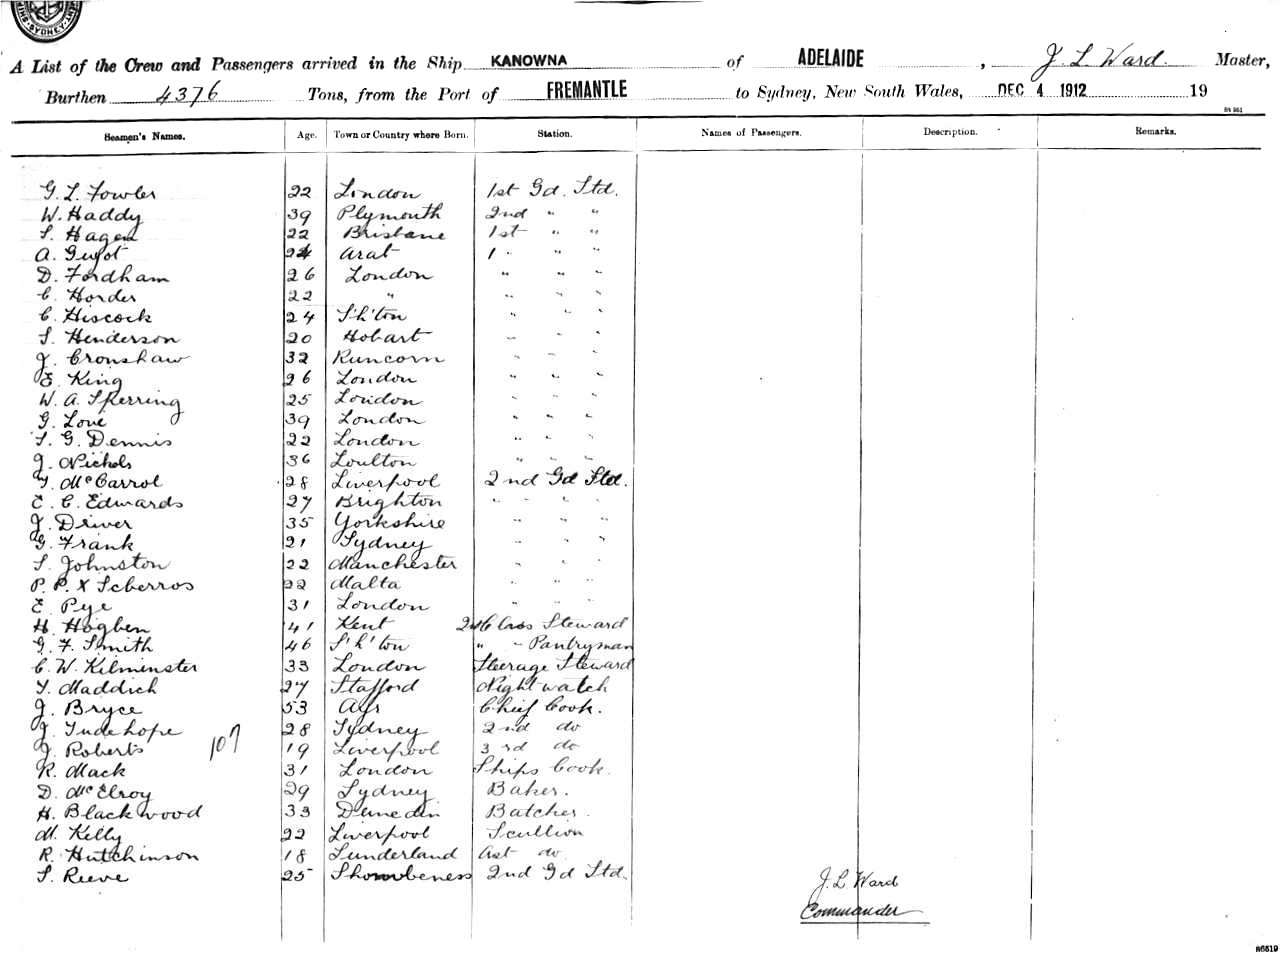 SYDNEY
A List of the Crew and Passengers arrived in the Ship KANOWNA of ADELAIDE, J. L. Ward. Master,
Burthen 4376 Tons, from the Port of FREMANTLE to Sydney, New South Wales, DEC 4 1912 19
Seamen's Names. Age. Town or Country where Born. Station. Names of Passengers. Description. Remarks.
G. L. Fowler 22 London 1st Gd. Std.
W. Haddy 39 Plymouth 2nd " "
S. Hagen 22 Brisbane 1st " "
A. Guyot 24 Arat 1 " " "
D. Fordham 26 London " " "
C. Horder 22 " " " "
C. Hiscock 24 S'h'ton " " "
S. Henderson 20 Hobart " " "
J. Cronshaw 32 Runcorn " " "
E. King 26 London " " "
W. A. Sperring 25 London " " "
G. Love 39 London " " "
S. G. Dennis 22 London " " "
J. Nichols 36 Loulton " " "
T. McCarrol 28 Liverpool 2nd Gd Std.
E. C. Edwards 27 Brighton " " " "
J. Driver 35 Yorkshire " " "
G. Frank 21 Sydney " " "
S. Johnston 22 Manchester " " "
P. P. X Scberros 22 Malta " " "
E. Pye 31 London " " "
H. Hogben 41 Kent 2nd Class Steward
G. F. Smith 46 S'h'ton " - Pantryman
C. W. Kilminster 33 London Steerage Steward
T. Maddich 27 Stafford Nightwatch
J. Bryce 53 Ayr Chief Cook.
J. Tudehope 28 Sydney 2nd do
J. Roberts 107 19 Liverpool 3rd do
R. Mack 31 London Ships Cook.
D. McElroy 29 Sydney Baker.
H. Blackwood 33 Dunedin Batcher.
M. Kelly 22 Liverpool Scullion
R. Hutchinson 18 Sunderland Ast do
S. Reeve 25 Shoeburness 2nd Gd Std.
J. L. Ward
Commander
86519